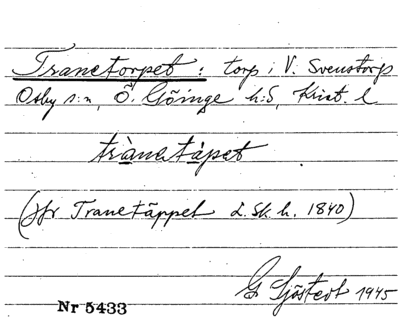 Tranetorpet: torp i V. Svenstorp
Osby s:n, Ö. Göinge h:d, Krist. l
trànetàpet
(jfr Tranetäppet L.Sk.h. 1840)
G Sjöstedt 1945
Nr 5433